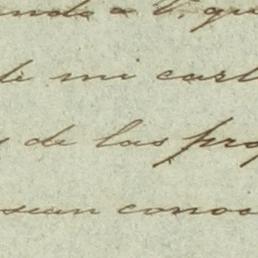 a V. qu
de mi cart
de las pro
sean conoc